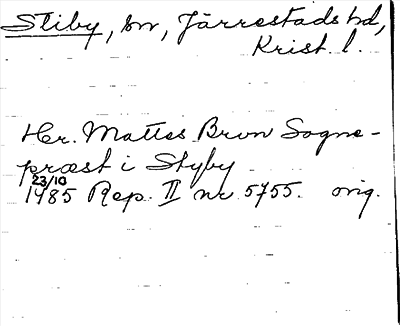 Stiby, sn, Järrestads hd,
Krist. l.
Her. Mattes Brvn Sogne-
præst i Styby
23/10
1485 Rep. II nr 5755. orig.